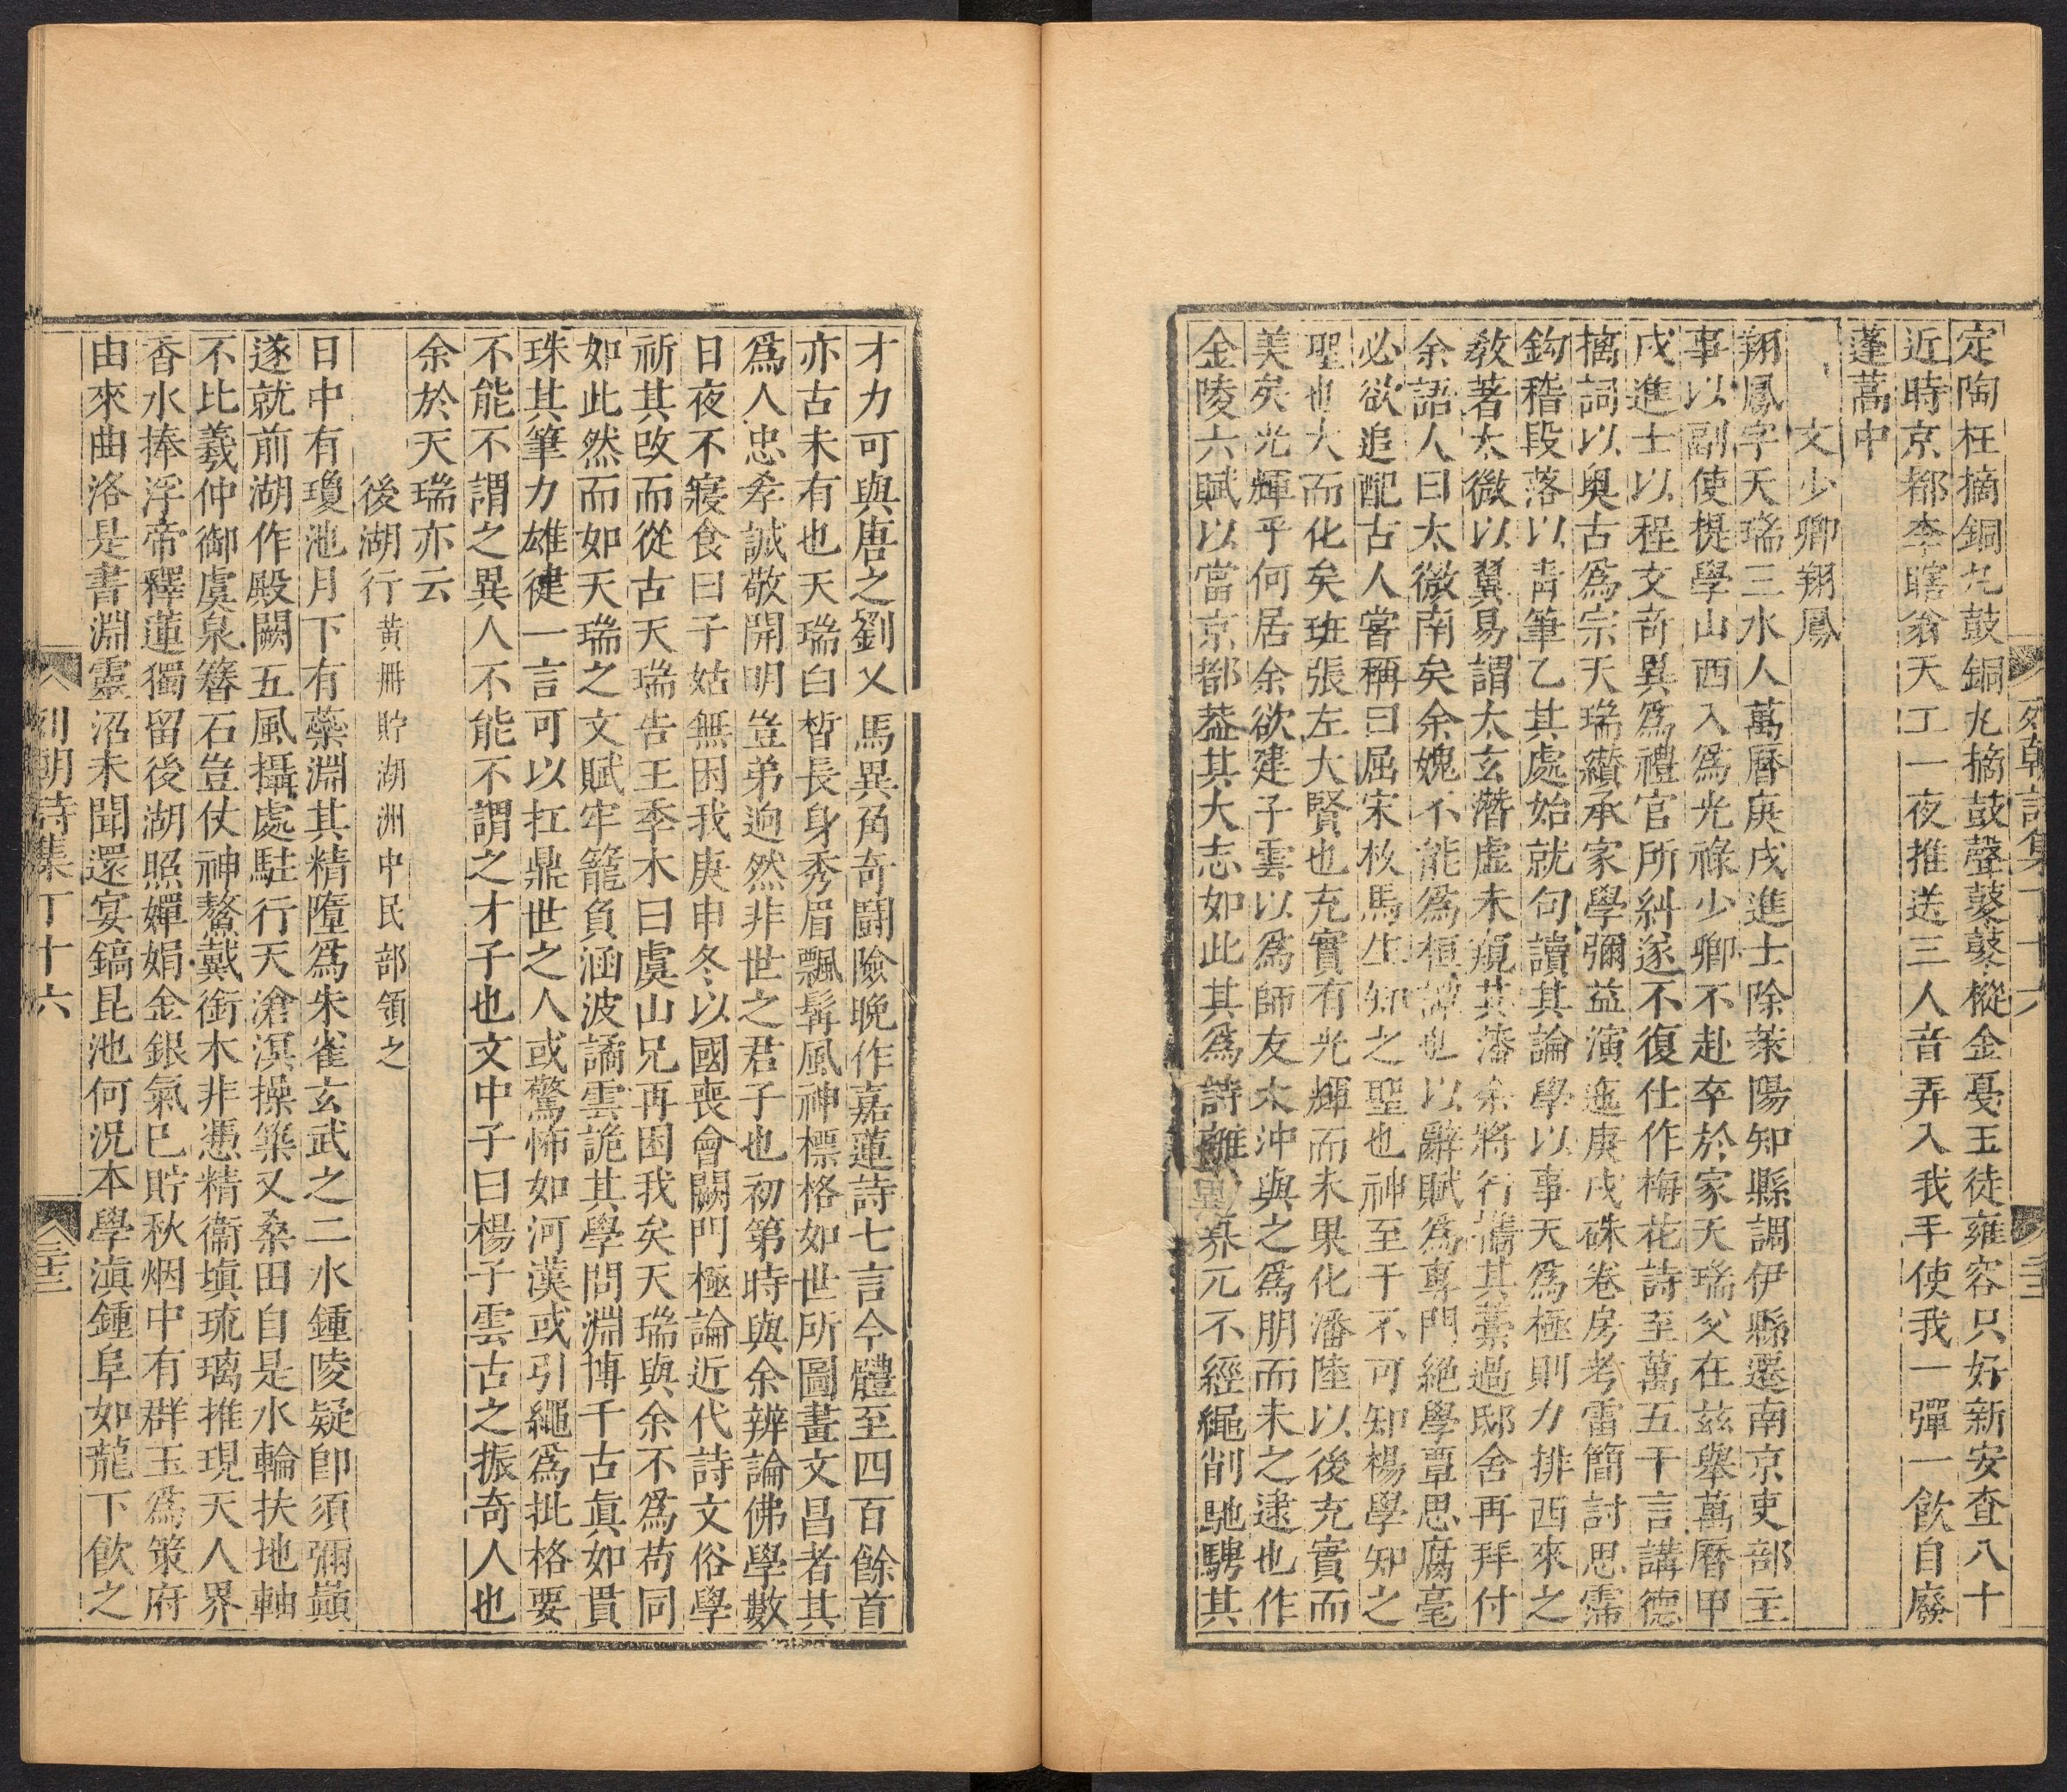 定陶枉摘銅丸鼓銅丸摘鼓聲鼕鼕摐金戞玉徒雍容只好新安查八十
近時京都李瞎翁天工一夜推送三人音弄入我手使我一彈一飲自廢
蓬蒿中
文少卿翔鳳
翔鳳字天瑞三水人萬曆庚戌進士除萊陽知縣調伊縣遷南京吏部主
事以副使提學山西入爲光祿少卿不赴卒於家天瑞父在兹舉萬曆甲
戌進士以程文奇異爲禮官所糾遂不復仕作梅花詩至萬五千言講德
摛詞以奧古爲宗天瑞纘承家學彌益演迤庚戌硃卷房考雷簡討思霈
鈎稽段落以青筆乙其處始就句讀其論學以事天爲極則力排西來之
敎著太微以翼易謂太玄潛虛未窺其藩余將行攜其藁過邸舍再拜付
余語人曰太微南矣余媿不能爲桓譚也以辭賦爲專門絕學覃思腐毫
必欲追配古人嘗稱曰屈宋枚馬生知之聖也神至于不可知楊學知之
聖也大而化矣班張左大賢也充實有光輝而未果化潘陸以後充實而
美矣光輝乎何居余欲建子雲以爲師友太沖與之爲朋而未之逮也作
金陵六賦以當京都葢其大志如此其爲詩離異慕元不經繩削馳騁其
才力可與唐之劉乂馬異角奇鬭險晚作嘉蓮詩七言今體至四百餘首
亦古未有也天瑞白皙長身秀眉飄髯風神標格如世所圖畫文昌者其
爲人忠孝誠敬開明豈弟逈然非世之君子也初第時與余辨論佛學數
日夜不寢食曰子姑無困我庚申冬以國喪會闕門極論近代詩文俗學
祈其改而從古天瑞告王季木曰虞山兄再困我矣天瑞與余不爲苟同
如此然而如天瑞之文賦牢籠負涵波譎雲詭其學問淵博千古眞如貫
珠其筆力雄徤一言可以扛鼎世之人或驚怖如河漢或引繩爲批格要
不能不謂之異人不能不謂之才子也文中子曰楊子雲古之振奇人也
余於天瑞亦云
後湖行黃冊貯湖洲中民部領之
日中有瓊池月下有蘂淵其精墮爲朱雀玄武之二水鍾陵疑卽須彌巓
遂就前湖作殿闕五風攝處駐行天滄溟操築又桑田自是水輪扶地軸
不比羲仲御虞泉簪石豈仗神鰲戴銜木非憑精衞塡琉璃推現天人界
香水捧浮帝釋蓮獨留後湖照嬋娟金銀氣已貯秋烟中有群玉爲策府
由來曲洛是書淵靈沼未聞還宴鎬昆池何況本學滇鍾阜如龍下飲之
列朝詩集丁十六